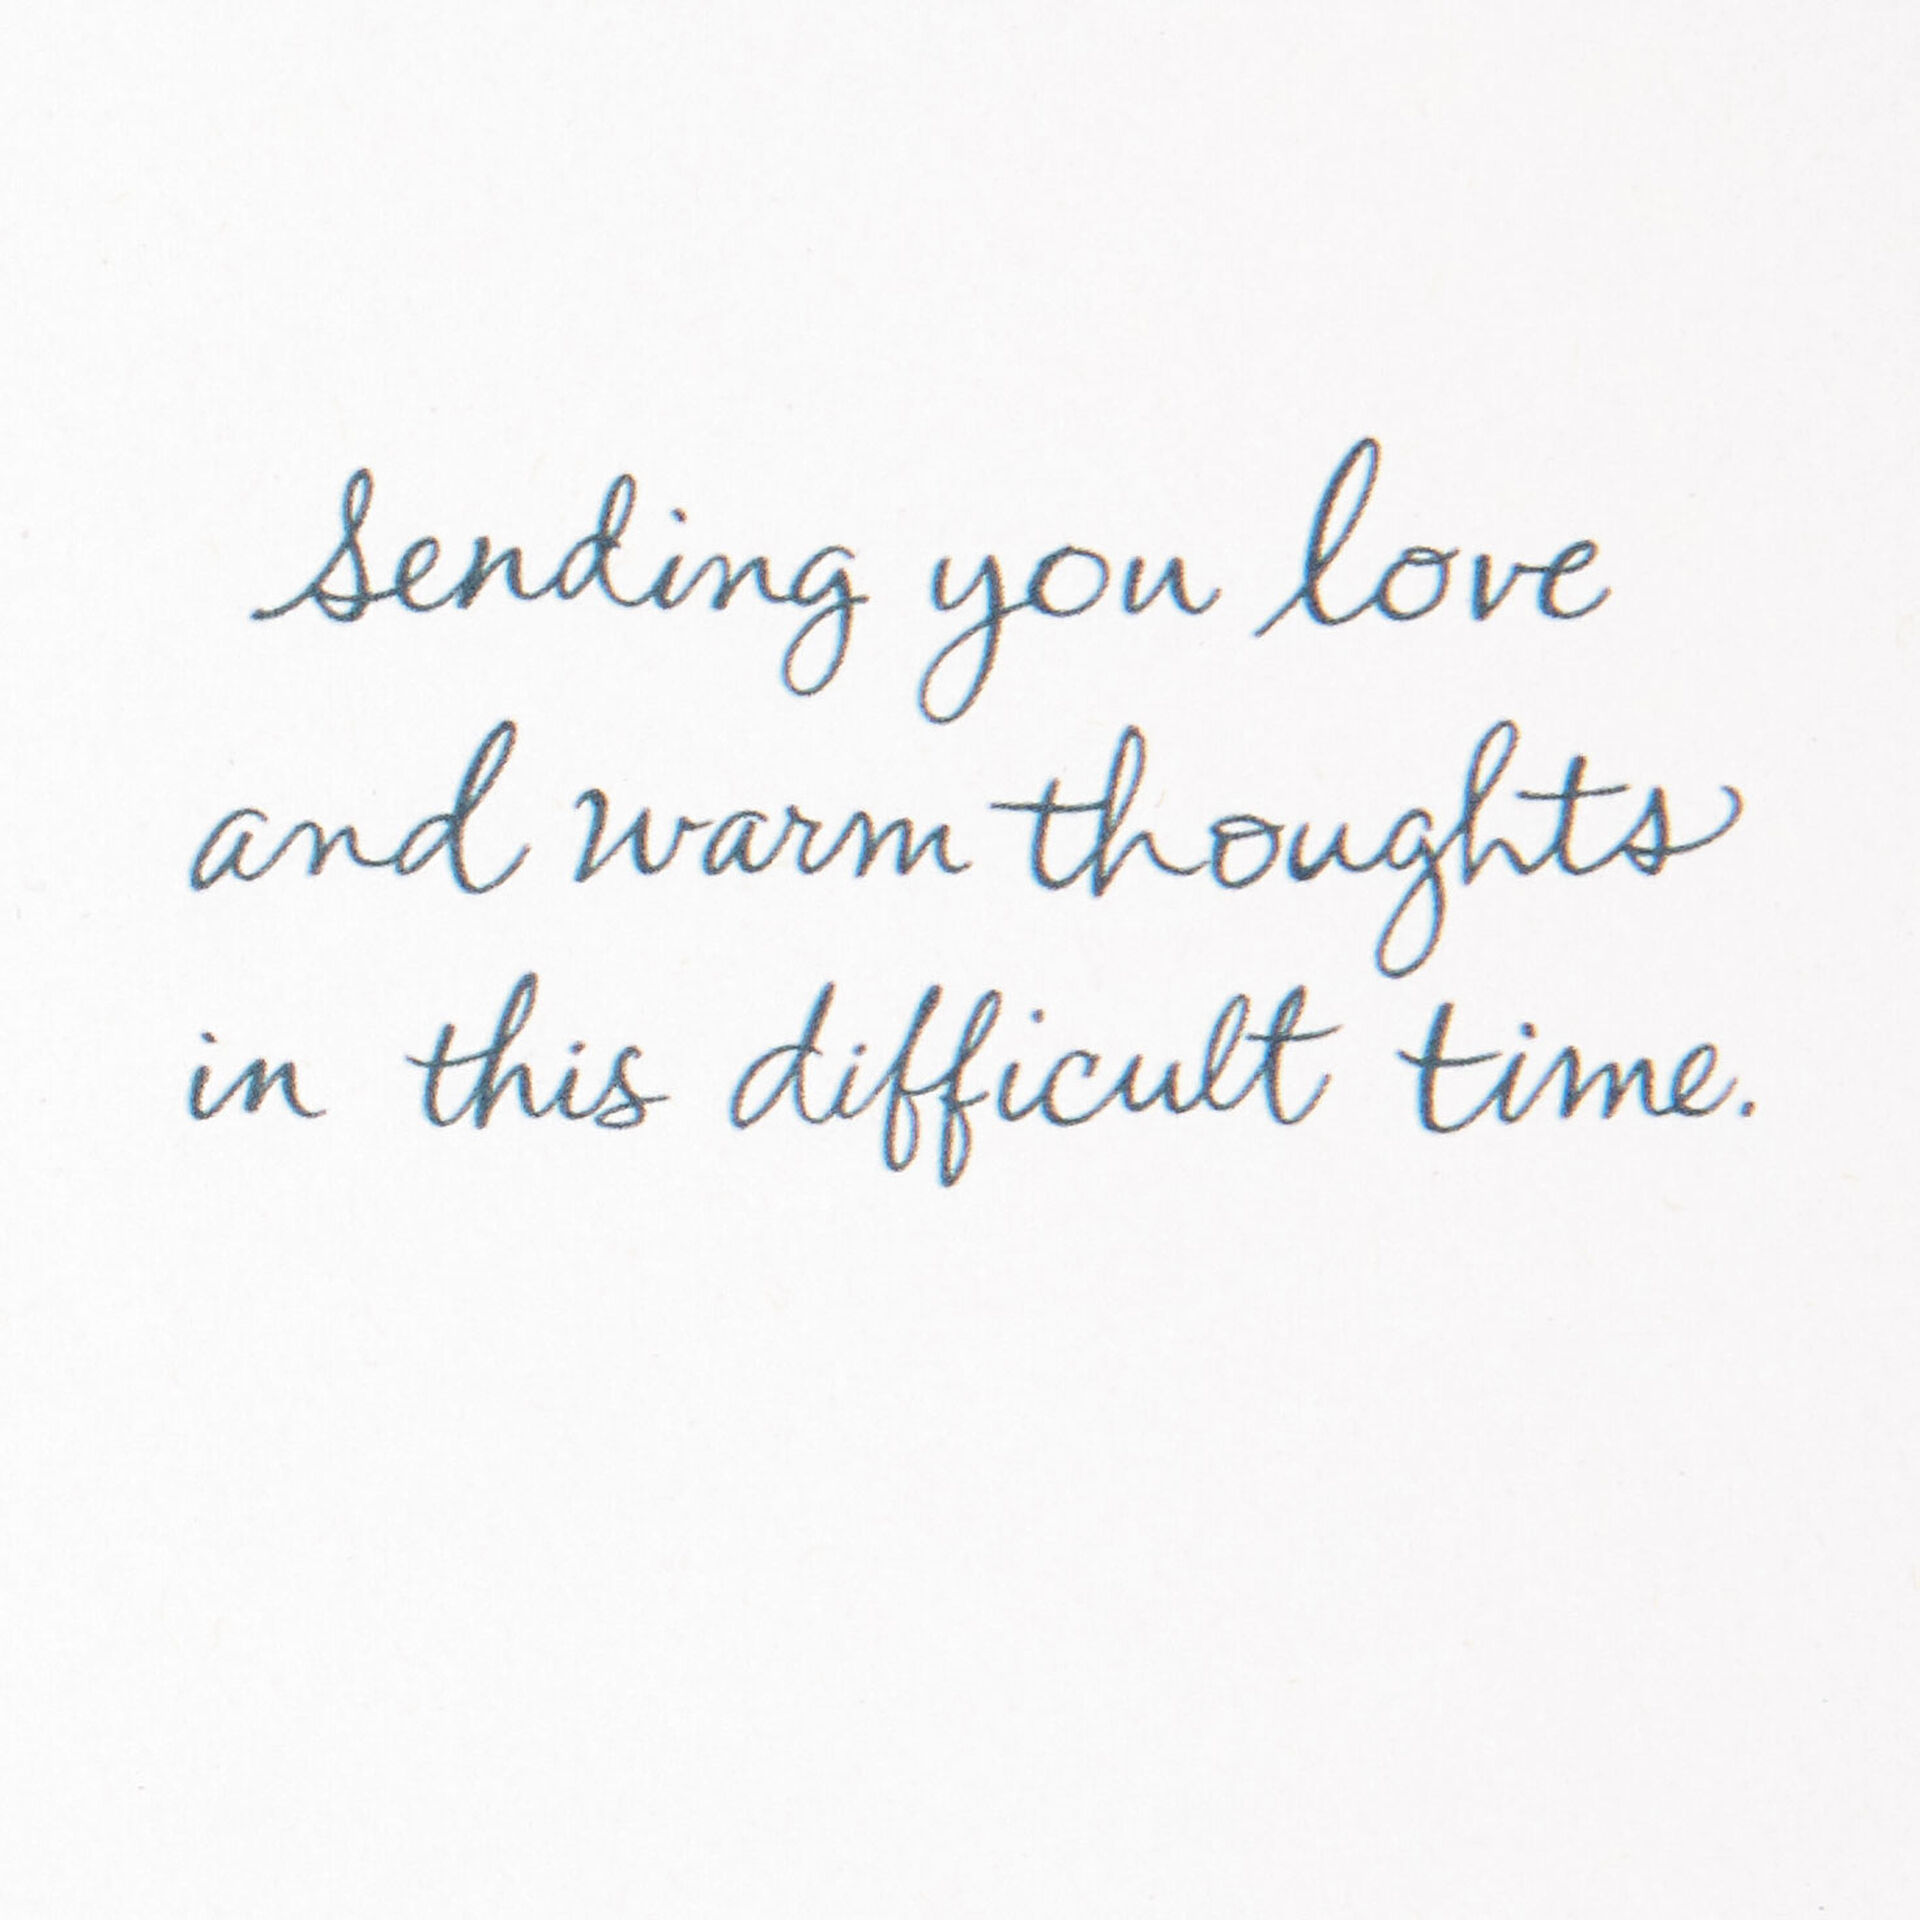 Sending you love
and warm thoughts
in this difficult time.